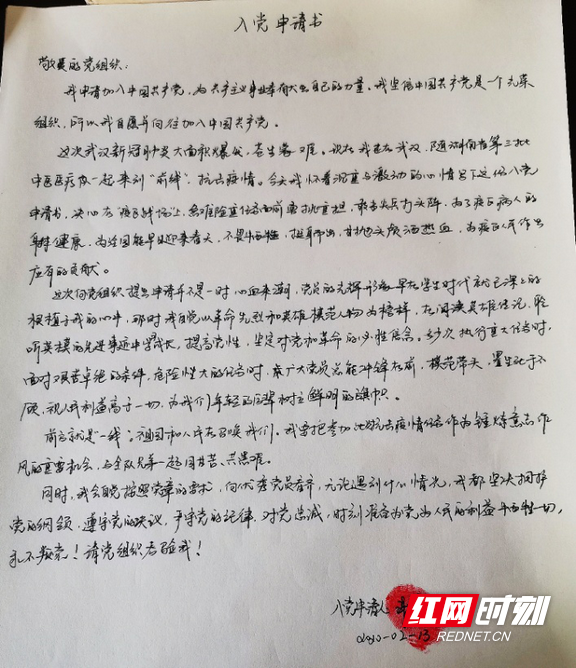 入党申请书
敬爱的党组织：
我申请加入中国共产党，为共产主义事业奉献出自己的力量。我坚信中国共产党是一个先荣
组织，所以我自愿并向往加入中国共产党。
这次武汉新冠肺炎大面积爆发，苍生蒙难。现在我在武汉，随湖南省第三批
中医医疗队一起来到“前线”，抗击疫情。今天我怀着沉重与激动的心情写下这份入党
申请书，决心在疫战场上，急难险重任务面前勇挑重担，敢当先锋打头阵，为了疫区病人的
健康，为祖国能早日迎来春天，不畏牺牲，挺身而出，甘抛头颅洒热血，为疫区人民作出
应有的贡献。
这次向党组织提出申请并不是一时心血来潮，党员的光辉形象早在学生时代就已深深的
根植于我的心中，那时我便以革命先烈和英雄模范人物为榜样，在阅读英雄传记，聆
听英模的先进事迹中学成长，提高党性，坚定对党和革命的必胜信念。每次执行重大任务时，
面对艰苦卓绝的条件，危险性大的任务时，广大党员总能冲锋在前，模范带头，置生死于不
顾，视人民利益高于一切，为我们年轻的后辈树立鲜明的旗帜。
前方就是一线；祖国和人民在召唤我们。我要把参加此次抗击疫情任务作为锤炼意志作
风的重要机会，与全队兄弟一起同甘苦、共患难。
同时，我会自觉按照党章的要求，向优秀党员看齐，无论遇到什么情况，我都坚决拥护
党的纲领，遵守党的决议，严守党的纪律，对党忠诚，时刻准备为党和人民的利益牺牲一切，
永不叛党！请党组织考验我！
入党申请人
2020-02-13
红网时刻
REDNET.CN